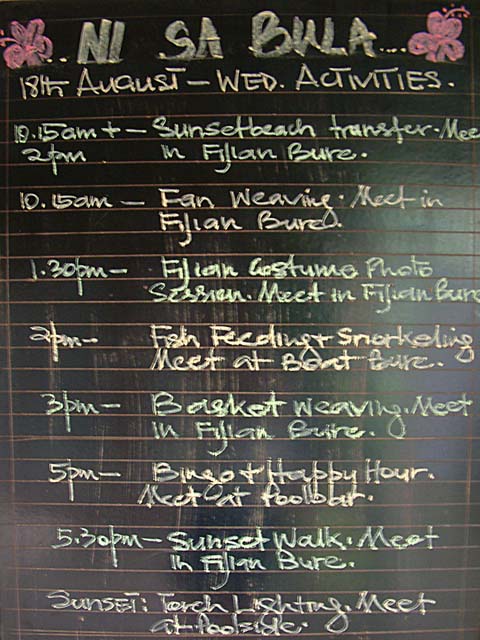 NI SA BULA...
18th AUGUST - WED. ACTIVITIES.
10.15am + - Sunsetbeach transfer. Mee
2pm in Fijian Bure.
10.15am - Fan Weaving. Meet in
Fijian Bure.
1.30pm - Fijian Costume Photo
Session. Meet in Fijian Bure
2pm - Fish Feeding + Snorkeling
Meet at Boat Bure.
3pm - Basket Weaving. Meet
in Fijian Bure.
5pm - Bingo + Happy Hour.
Meet at Poolbar.
5.30pm - Sunset Walk. Meet
in Fijian Bure.
SUNSET: Torch Lighting. Meet
at Poolside.